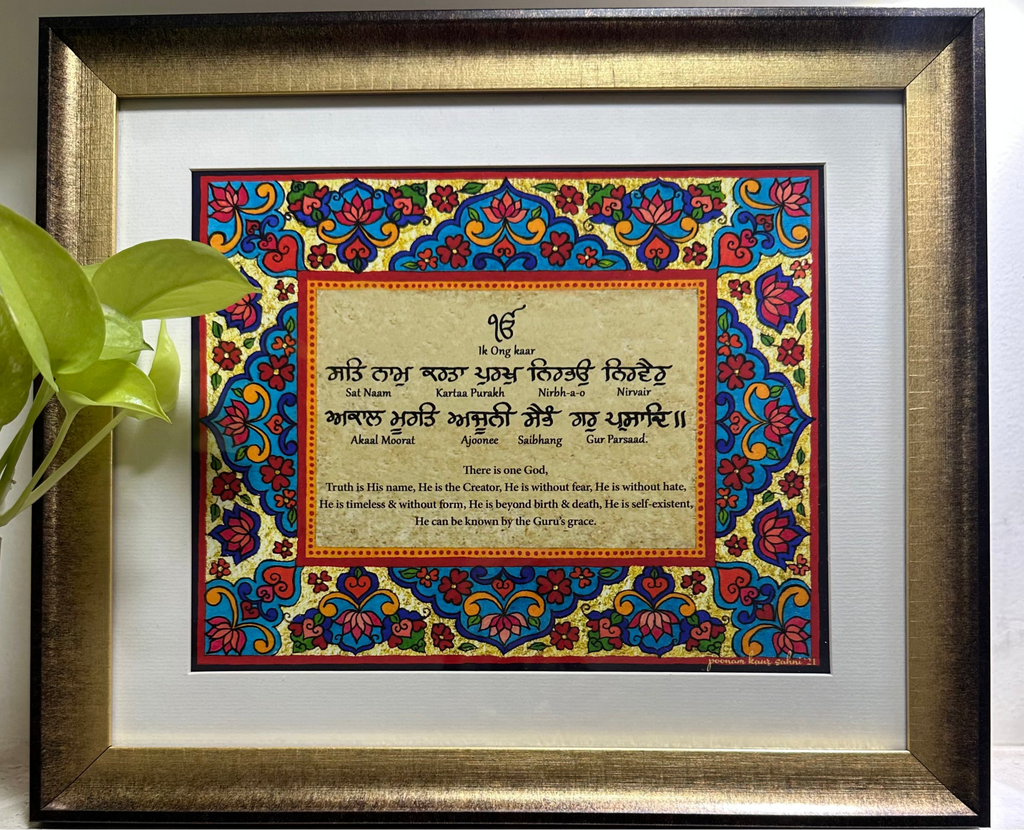 ੴ
Ik Ong kaar
ਸਤਿ ਨਾਮੁ ਕਰਤਾ ਪੁਰਖੁ ਨਿਰਭਉ ਨਿਰਵੈਰੁ
Sat Naam Kartaa Purakh Nirbh-a-o Nirvair
ਅਕਾਲ ਮੂਰਤਿ ਅਜੂਨੀ ਸੈਭੰ ਗਰੁ ਪ੍ਰਸਾਦਿ॥
Akaal Moorat Ajoonee Saibhang Gur Parsaad.
There is one God,
Truth is His name, He is the Creator, He is without fear, He is without hate,
He is timeless & without form, He is beyond birth & death, He is self-existent,
He can be known by the Guru's grace.
poonam kaur sahni '21